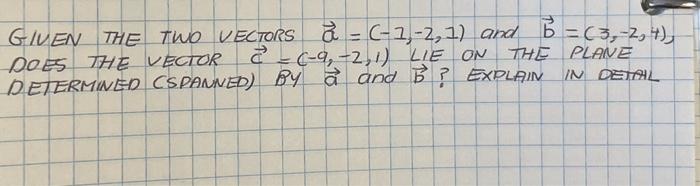 GIVEN THE TWO VECTORS a⃗ = (-1,-2,1) and b⃗ = (3,-2,4),
DOES THE VECTOR c⃗ = (-9,-2,1) LIE ON THE PLANE
DETERMINED (SPANNED) BY a⃗ and b⃗? EXPLAIN IN DETAIL